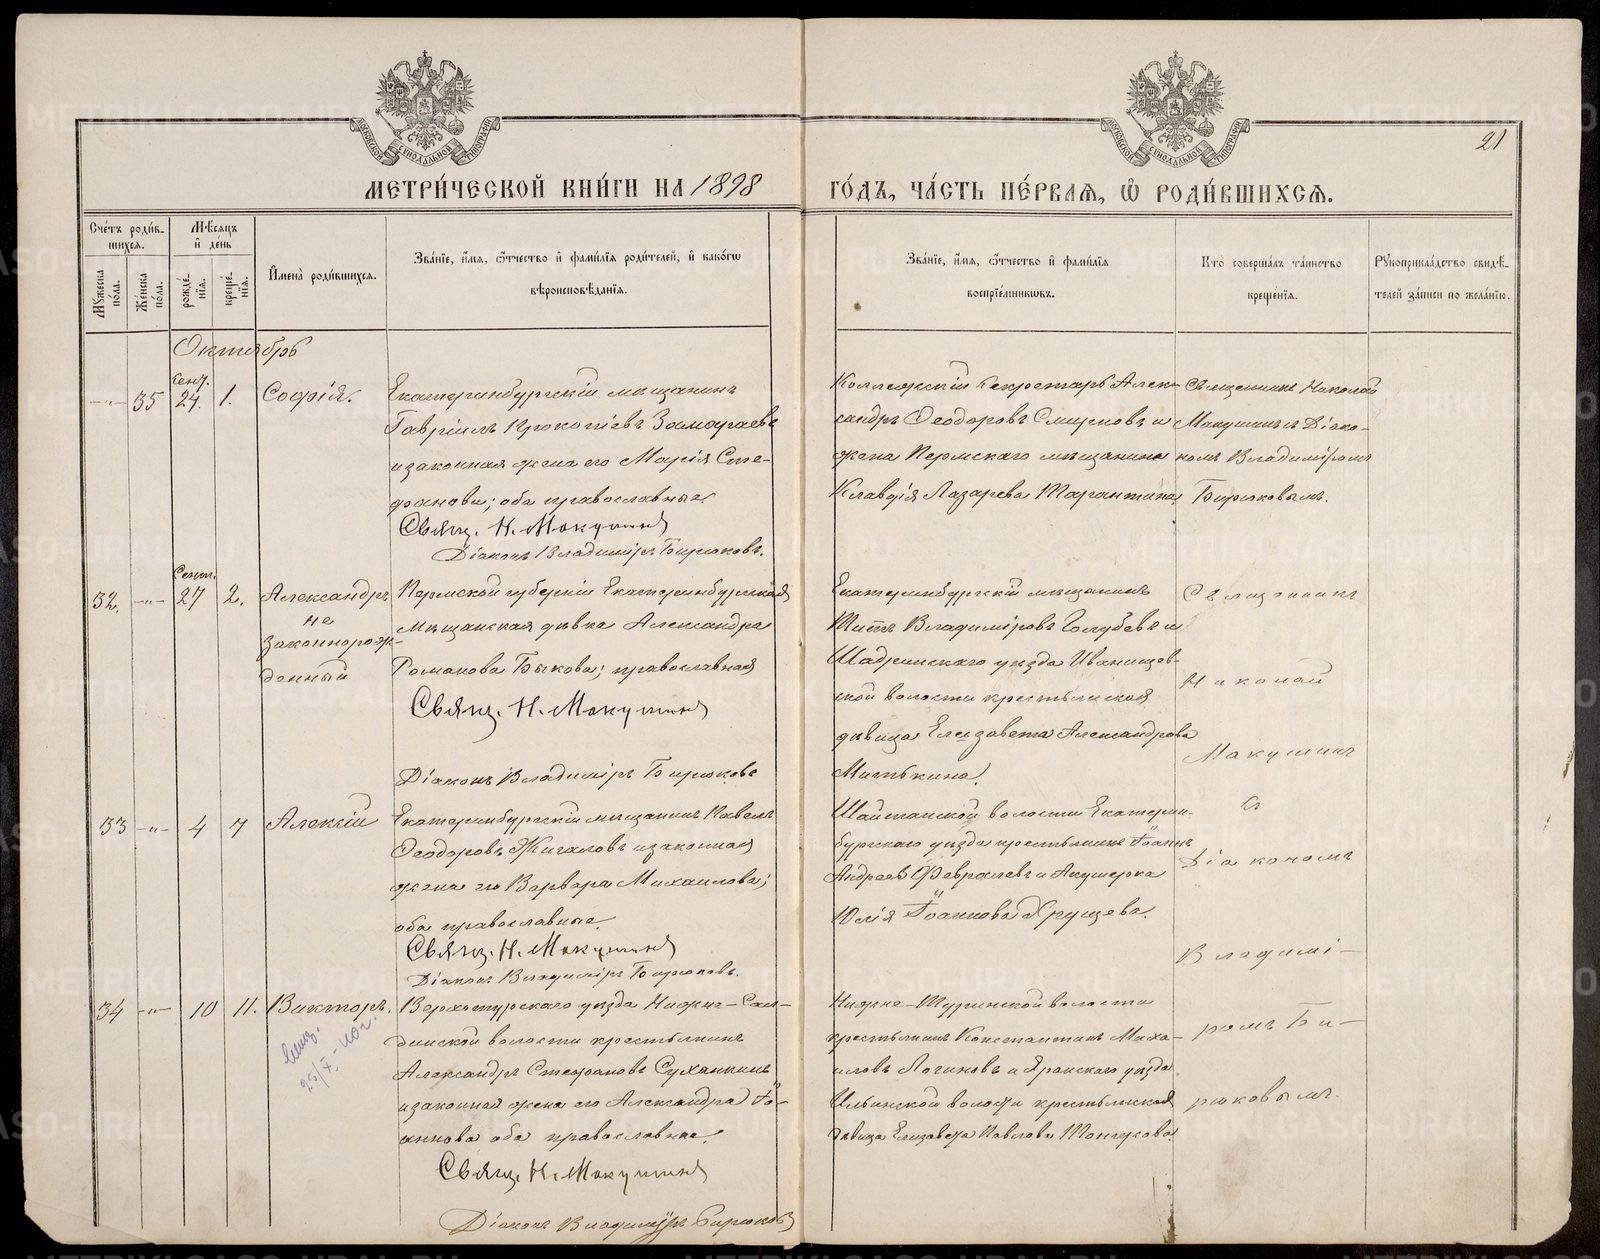 21
МЕТРИ́ЧЕСКОЙ КНИ́ГИ НА 1898 ГО́ДЪ, ЧА́СТЬ ПЕ́РВАѦ, Ѽ РОДИ́ВШИХСѦ.
Сче́тъ роди́в-
шихсѧ.
Мѣ́сѧцъ
и҆ де́нь
Мꙋ́жеска
по́ла.
Же́нска
по́ла.
рожде́-
нїѧ.
креще́-
нїѧ.
И҆мена̀ роди́вшихсѧ.
Зва́нїе, и҆́мѧ, ѻ҆́тчество и҆ фами́лїѧ роди́телей, и҆ како́гѡ
вѣроисповѣ́данїѧ.
Зва́нїе, и҆́мѧ, ѻ҆́тчество и҆ фами́лїѧ
воспрїе́мникѡвъ.
Кто̀ соверша́лъ та́инство
креще́нїѧ.
Рꙋкоприкла́дство свидѣ́-
телей за́писи по жела́нїю.
Октябрь
-"- 35 Сент. 24. 1. Софія.
Екатеринбургскій мѣщанинъ
Гавріилъ Прокопіевъ
и законная жена его Марія Сте-
фанова; оба православные.
Свящ. Н. Макушинъ
Діаконъ Владиміръ Бирюковъ.
Коллежскій Секретарь Алек-
сандръ Ѳеодоровъ Смирновъ и
жена Пермскаго мѣщанина
Клавдія Лазарева
Священникъ Николай
Макушинъ съ Діако-
номъ Владиміромъ
Бирюковымъ.
32. -"- Сент. 27 2. Александръ
не
законнорож-
денный
Пермской губерніи Екатеринбургская
мѣщанская дѣвка Александра
Романова Быкова; православная
Свящ. Н. Макушинъ
Діаконъ Владиміръ Бирюковъ
Екатеринбургскій мѣщанинъ
Титъ Владиміровъ Голубевъ и
Шадринскаго уѣзда Иванищев-
ской волости крестьянская
дѣвица Елизавета Александрова
Митькина.
Священникъ
Николай
Макушинъ
съ
Діакономъ
Владимі-
ромъ Би-
рюковымъ.
33 -"- 4 7 Алексій
Екатеринбургскій мѣщанинъ Павелъ
Ѳеодоровъ Жигаловъ и законная
жена его Варвара Михаилова;
оба православные.
Свящ. Н. Макушинъ
Діаконъ Владиміръ Бирюковъ.
Шайтанской волости Екатерин-
бургскаго уѣзда крестьянинъ Іоаннъ
Андреевъ Февралевъ и Акушерка
Юлія Іоаннова Хрущева.
34 -"- 10 11. Викторъ.
25/X
Верхотурскаго уѣзда Нижне-Сал-
динской волости крестьянинъ
Александръ Стефановъ Суханкинъ
и законная жена его Александра Іо-
аннова оба православные.
Свящ. Н. Макушинъ
Діаконъ Владиміръ Бирюковъ
Нижне-Туринской волости
крестьянинъ Константинъ Миха-
иловъ Логиновъ и Яранскаго уѣзда
Ильинской волости крестьянская
дѣвица Елизавета Павлова